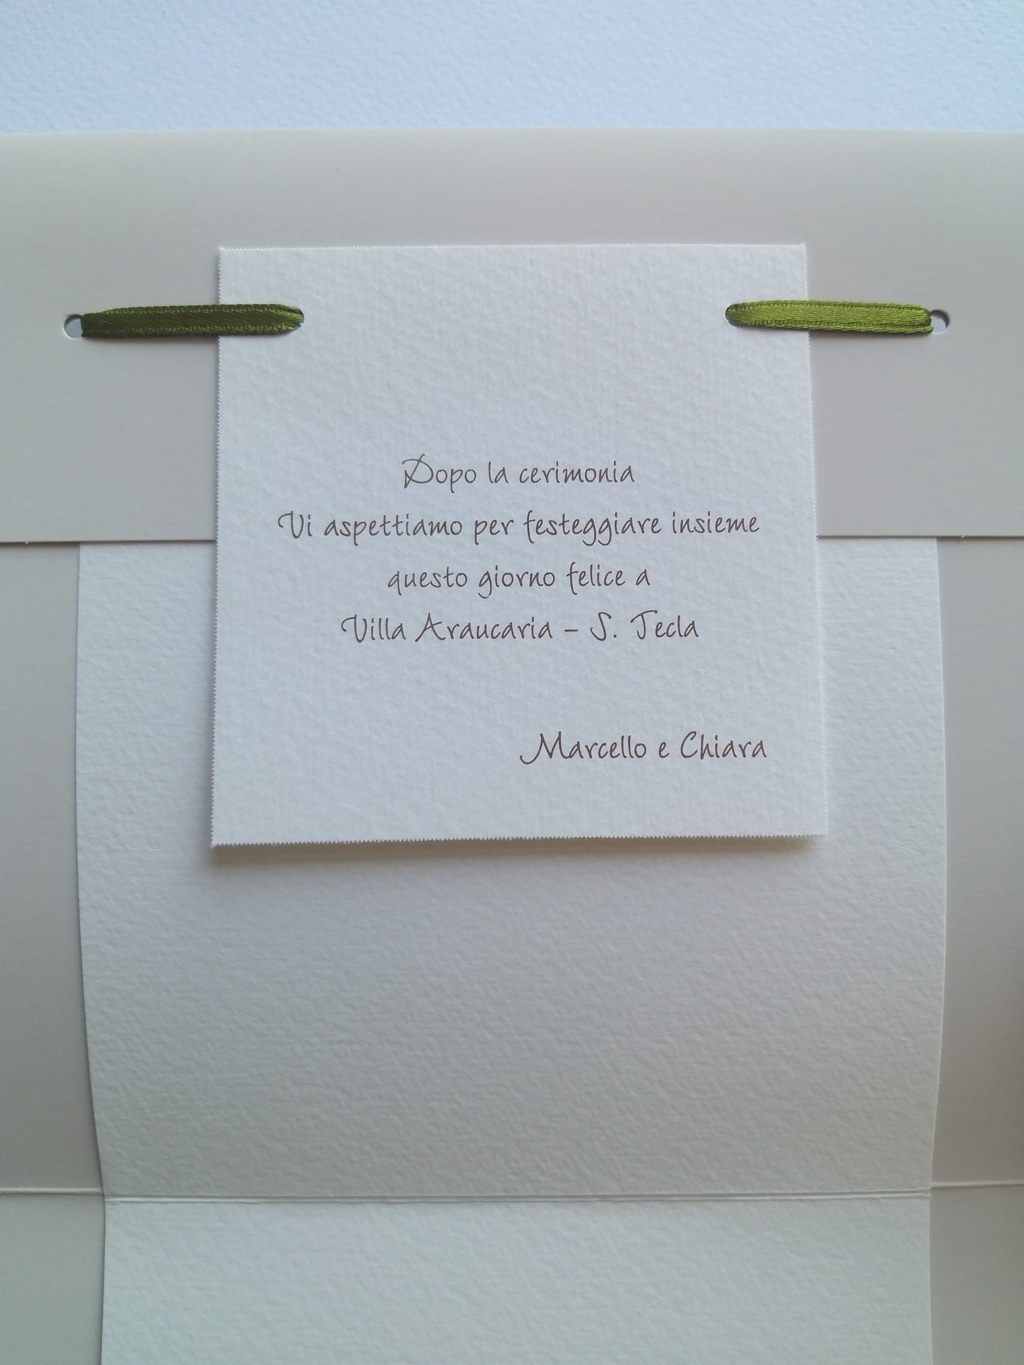 Dopo la cerimonia
Vi aspettiamo per festeggiare insieme
questo giorno felice a
Villa Araucaria – S. Tecla
Marcello e Chiara